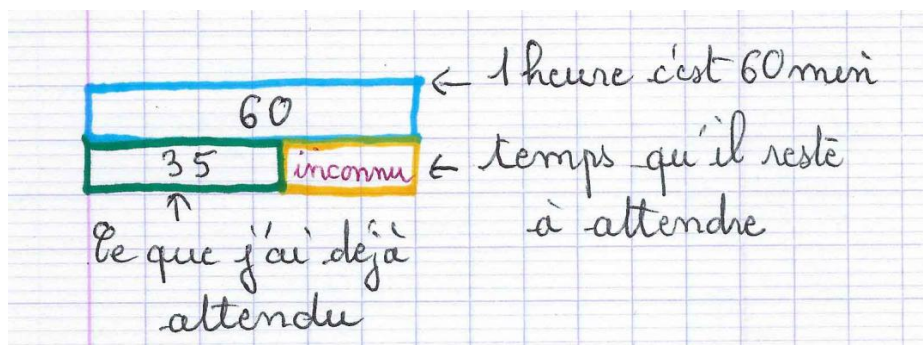 ← 1 heure c'est 60 min
60
35 inconnu ← temps qu'il reste
à attendre
↑
Ce que j'ai déjà
attendu